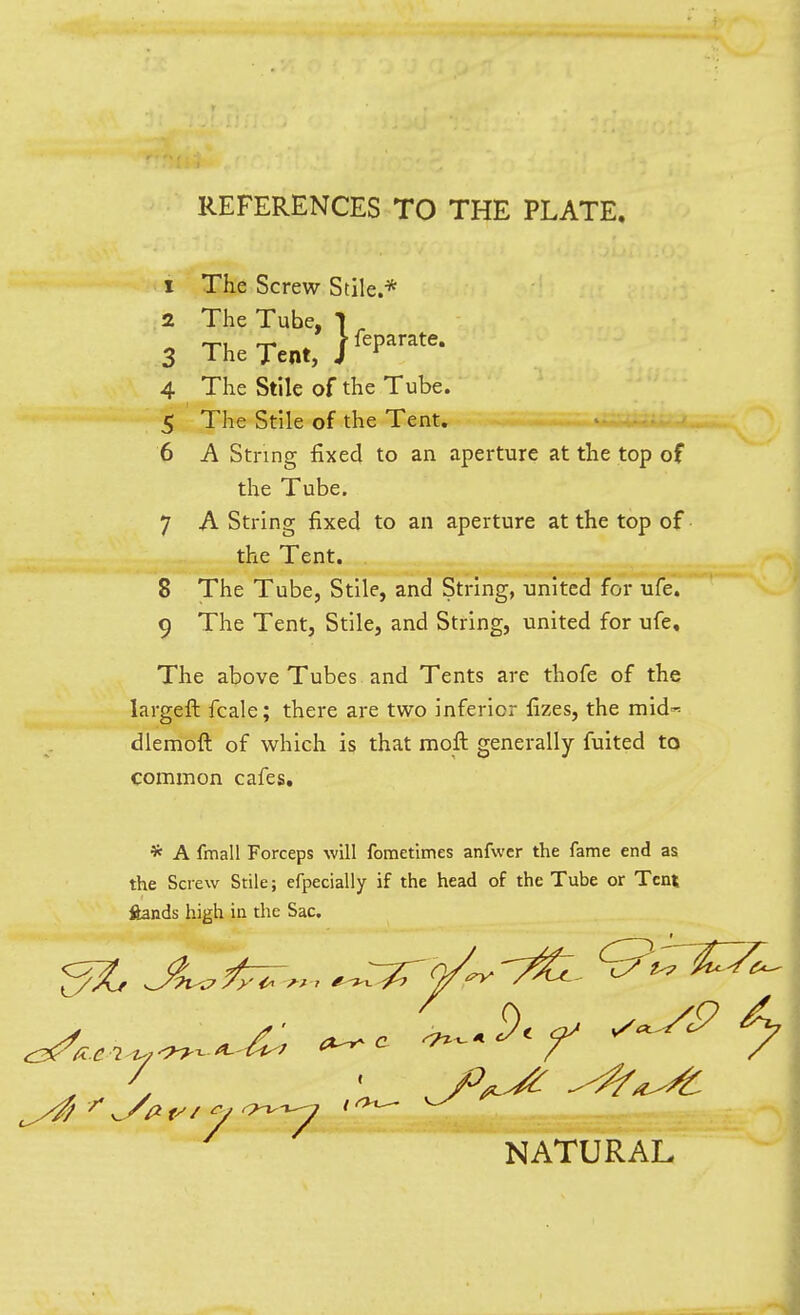 REFERENCES TO THE PLATE.
1 The Screw Stile.*
2 The Tube, }
3 The Tent, } ſeparate.
4 The Stile of the Tube.
5 The Stile of the Tent.
6 A String fixed to an aperture at the top of
the Tube.
7 A String fixed to an aperture at the top of
the Tent.
8 The Tube, Stile, and String, united for uſe.
9 The Tent, Stile, and String, united for uſe.
The above Tubes and Tents are thoſe of the
largeſt ſcale; there are two inferior ſizes, the mid-
dlemoſt of which is that moſt generally ſuited to
common caſes.
* A ſmall Forceps will ſometimes anſwer the ſame end as
the Screw Stile; eſpecially if the head of the Tube or Tent
ſtands high in the Sac.
The Instruments for the Fistula
Lacrymalis are made & sold by
Mr Savigny in Pall Mall
NATURAL